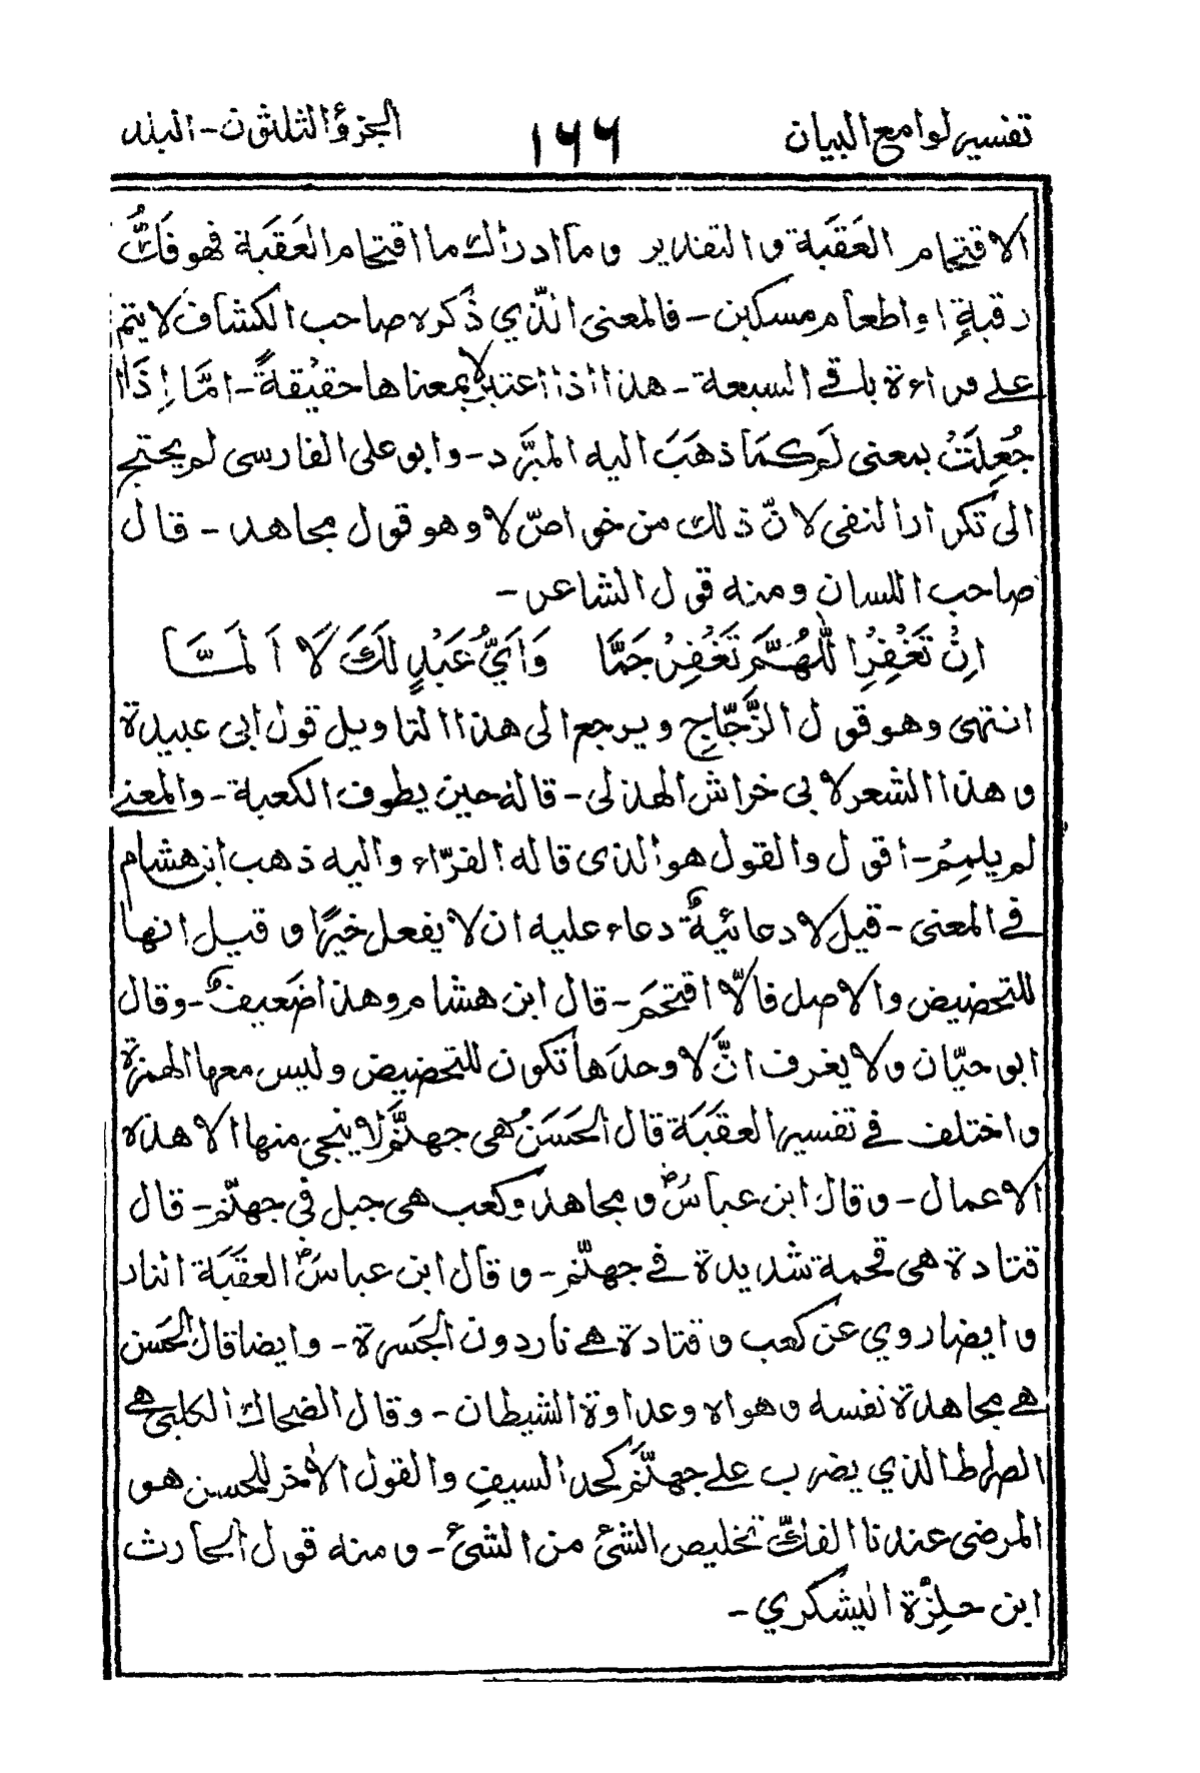 تفسير لوامع البيان ١٦٦ الجزؤ الثلثون - البلد
الاقتحام العَقَبَة والتقدير وما ادرٰك ما اقتحام العَقَبَة فهو فَكُّ
رقبةٍ او اطعام مسكين - فالمعنى الّذي ذُكره صاحب الكشاف لا يتم
على قراءة باقى السبعة - هذا اذا اعتبر لا بمعناها حقيقةً - امَّا إِذَا
جُعِلَتْ بمعنى لَم كمَا ذهَبَ اليه المبرَّد - وابو على الفارسى لم يحتج
الى تكرار النفى لانّ ذلك من خواصّ لا وهو قول مجاهد - قال
صاحب اللسان ومنه قول الشاعر -
اِنْ تَغْفِرِ اللّٰهُمَّ تَغْفِرْ جَمَّا وَاَيُّ عَبْدٍ لَكَ لَا اَلَمَّا
انتهى وهو قول الزَّجّاجِ ويرجع الى هذا التاويل قول ابى عبيدة
وهذا الشعر لابى خراش الهذلى - قالهٗ حين يطوف الكعبة - والمعنى
لم يلمِمْ - اقول والقول هو الذى قاله الفرّاء واليه ذهب ابن هشام
فى المعنى - قيل لا دعائيةٌ دعاء عليه ان لا يفعل خيرًا وقيل انها
للتحضيض والاصل فالّا اقتحَم - قال ابن هشام وهذا ضَعيفٌ - وقال
ابو حيّان ولا يعرف انَّ لا وحدَها تكون للتحضيض وليس معها الهمزة
واختلف فى تفسير العقَبَة قال الحَسَنُ هى جهنَّم لا ينجى منها الا هذه
الاعمال - وقال ابن عباسؓ ومجاهد وكعب هى جبل فى جهنّم - قال
قتادة هى قحمة شديدة فى جهنّم - وقال ابن عباسؓ العقَبَة النار
وايضا روي عن كعب وقتادة هى نار دون الجَسرة - وايضا قال الحَسَن
هى مجاهدة نفسه وهواه وعداوة الشيطان - وقال الضحاك الكلبى هى
الصراط الذي يضرب على جهنّم كحد السيفِ والقول الأخر للحسن هو
المرضى عندنا الفكّ تخليص الشئ من الشئ - ومنه قول الحارث
ابن حلِزَّة اليشكري -